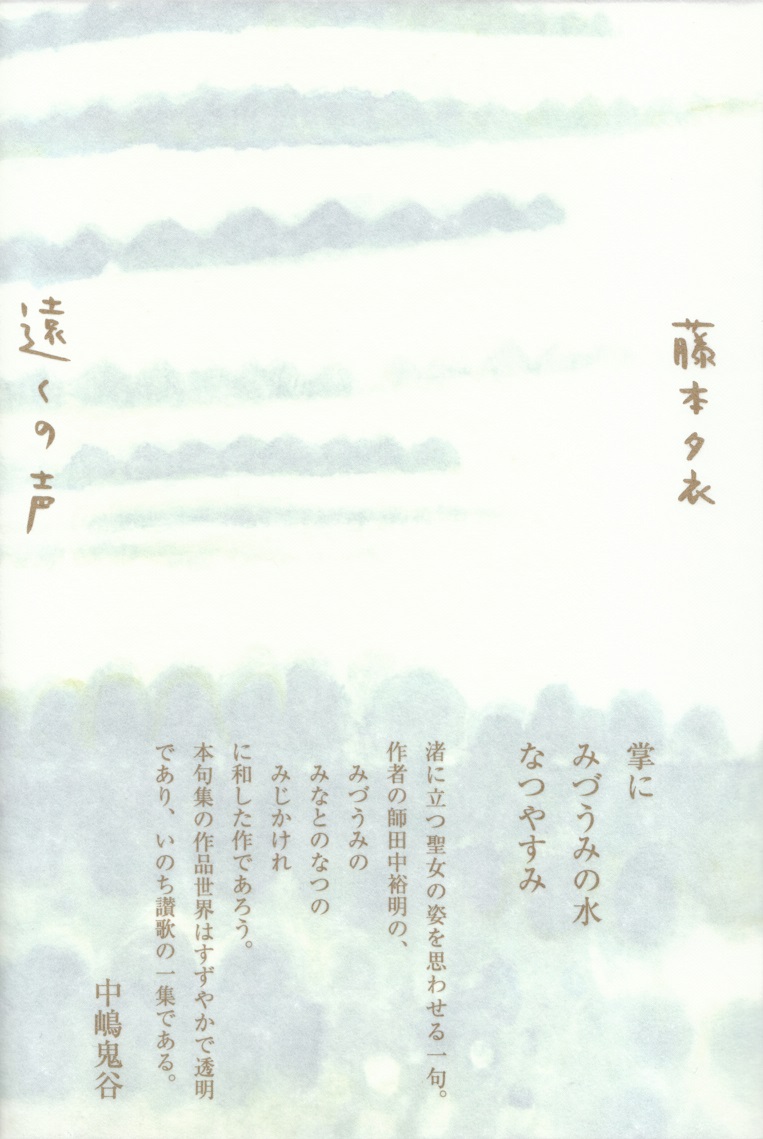 藤本夕衣
遠くの声
掌に
みづうみの水
なつやすみ
渚に立つ聖女の姿を思わせる一句。
作者の師田中裕明の、
みづうみの
みなとのなつの
みじかけれ
に和した作であろう。
本句集の作品世界はすずやかで透明
であり、いのち讃歌の一集である。
中嶋鬼谷